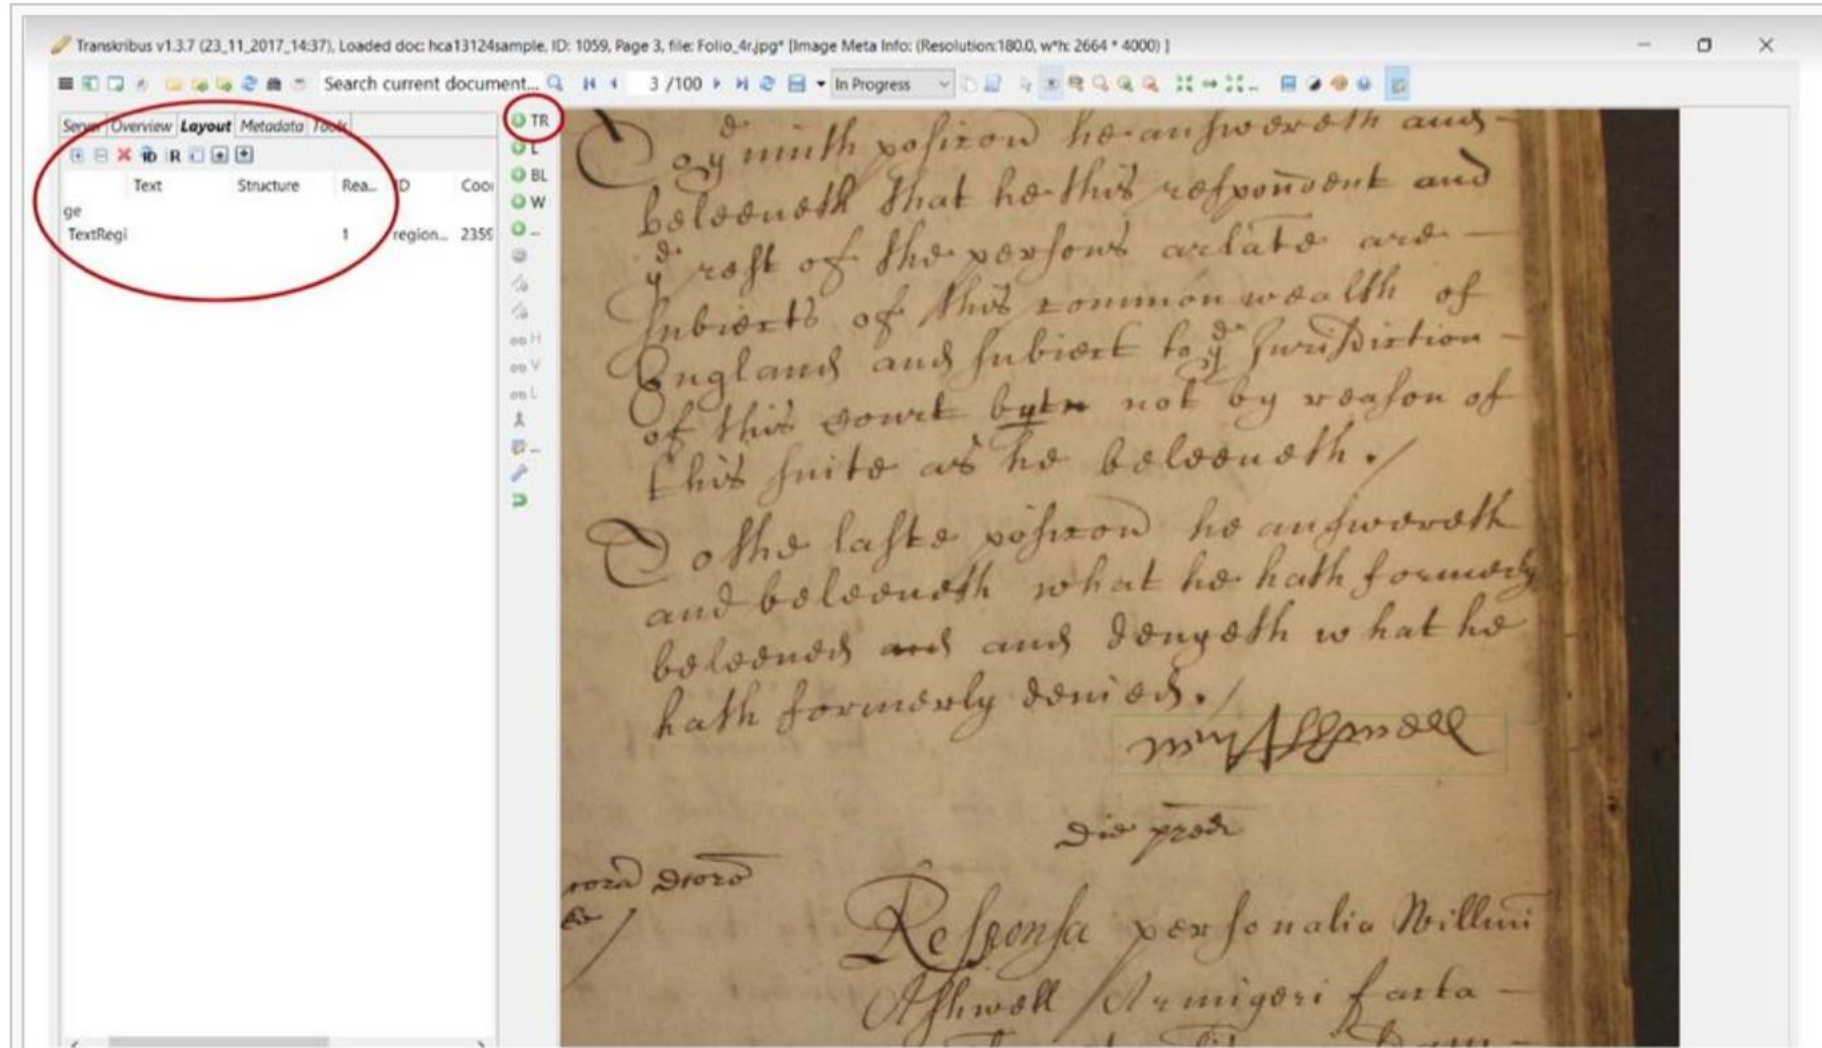 Transkribus v1.3.7 (23_11_2017_14:37), Loaded doc: hca13124sample, ID: 1059, Page 3, file: Folio_4r.jpg* [Image Meta Info: (Resolution:180.0, w*h: 2664 * 4000) ]
Search current document... 3 /100 In Progress
Server Overview Layout Metadata Tools
ID R
Text Structure Rea... ID Coor
ge
TextRegi 1 region... 2359
TR
L
BL
W
...
H
V
L
...
To ye ninth posicon he answereth and
beleeueth that he this respondent and
ye rest of the persons arlate are
subiects of this common wealth of
England and subiect to ye Jurisdiction
of this court but not by reason of
this suite as he beleeueth./
To the laste posicon he answereth
and beleeueth what he hath formerly
beleeued and and denyeth what he
hath formerly denied./
Wm Ashwell
die pred
Responsa personalia Willmi
Ashwell Armigeri facta